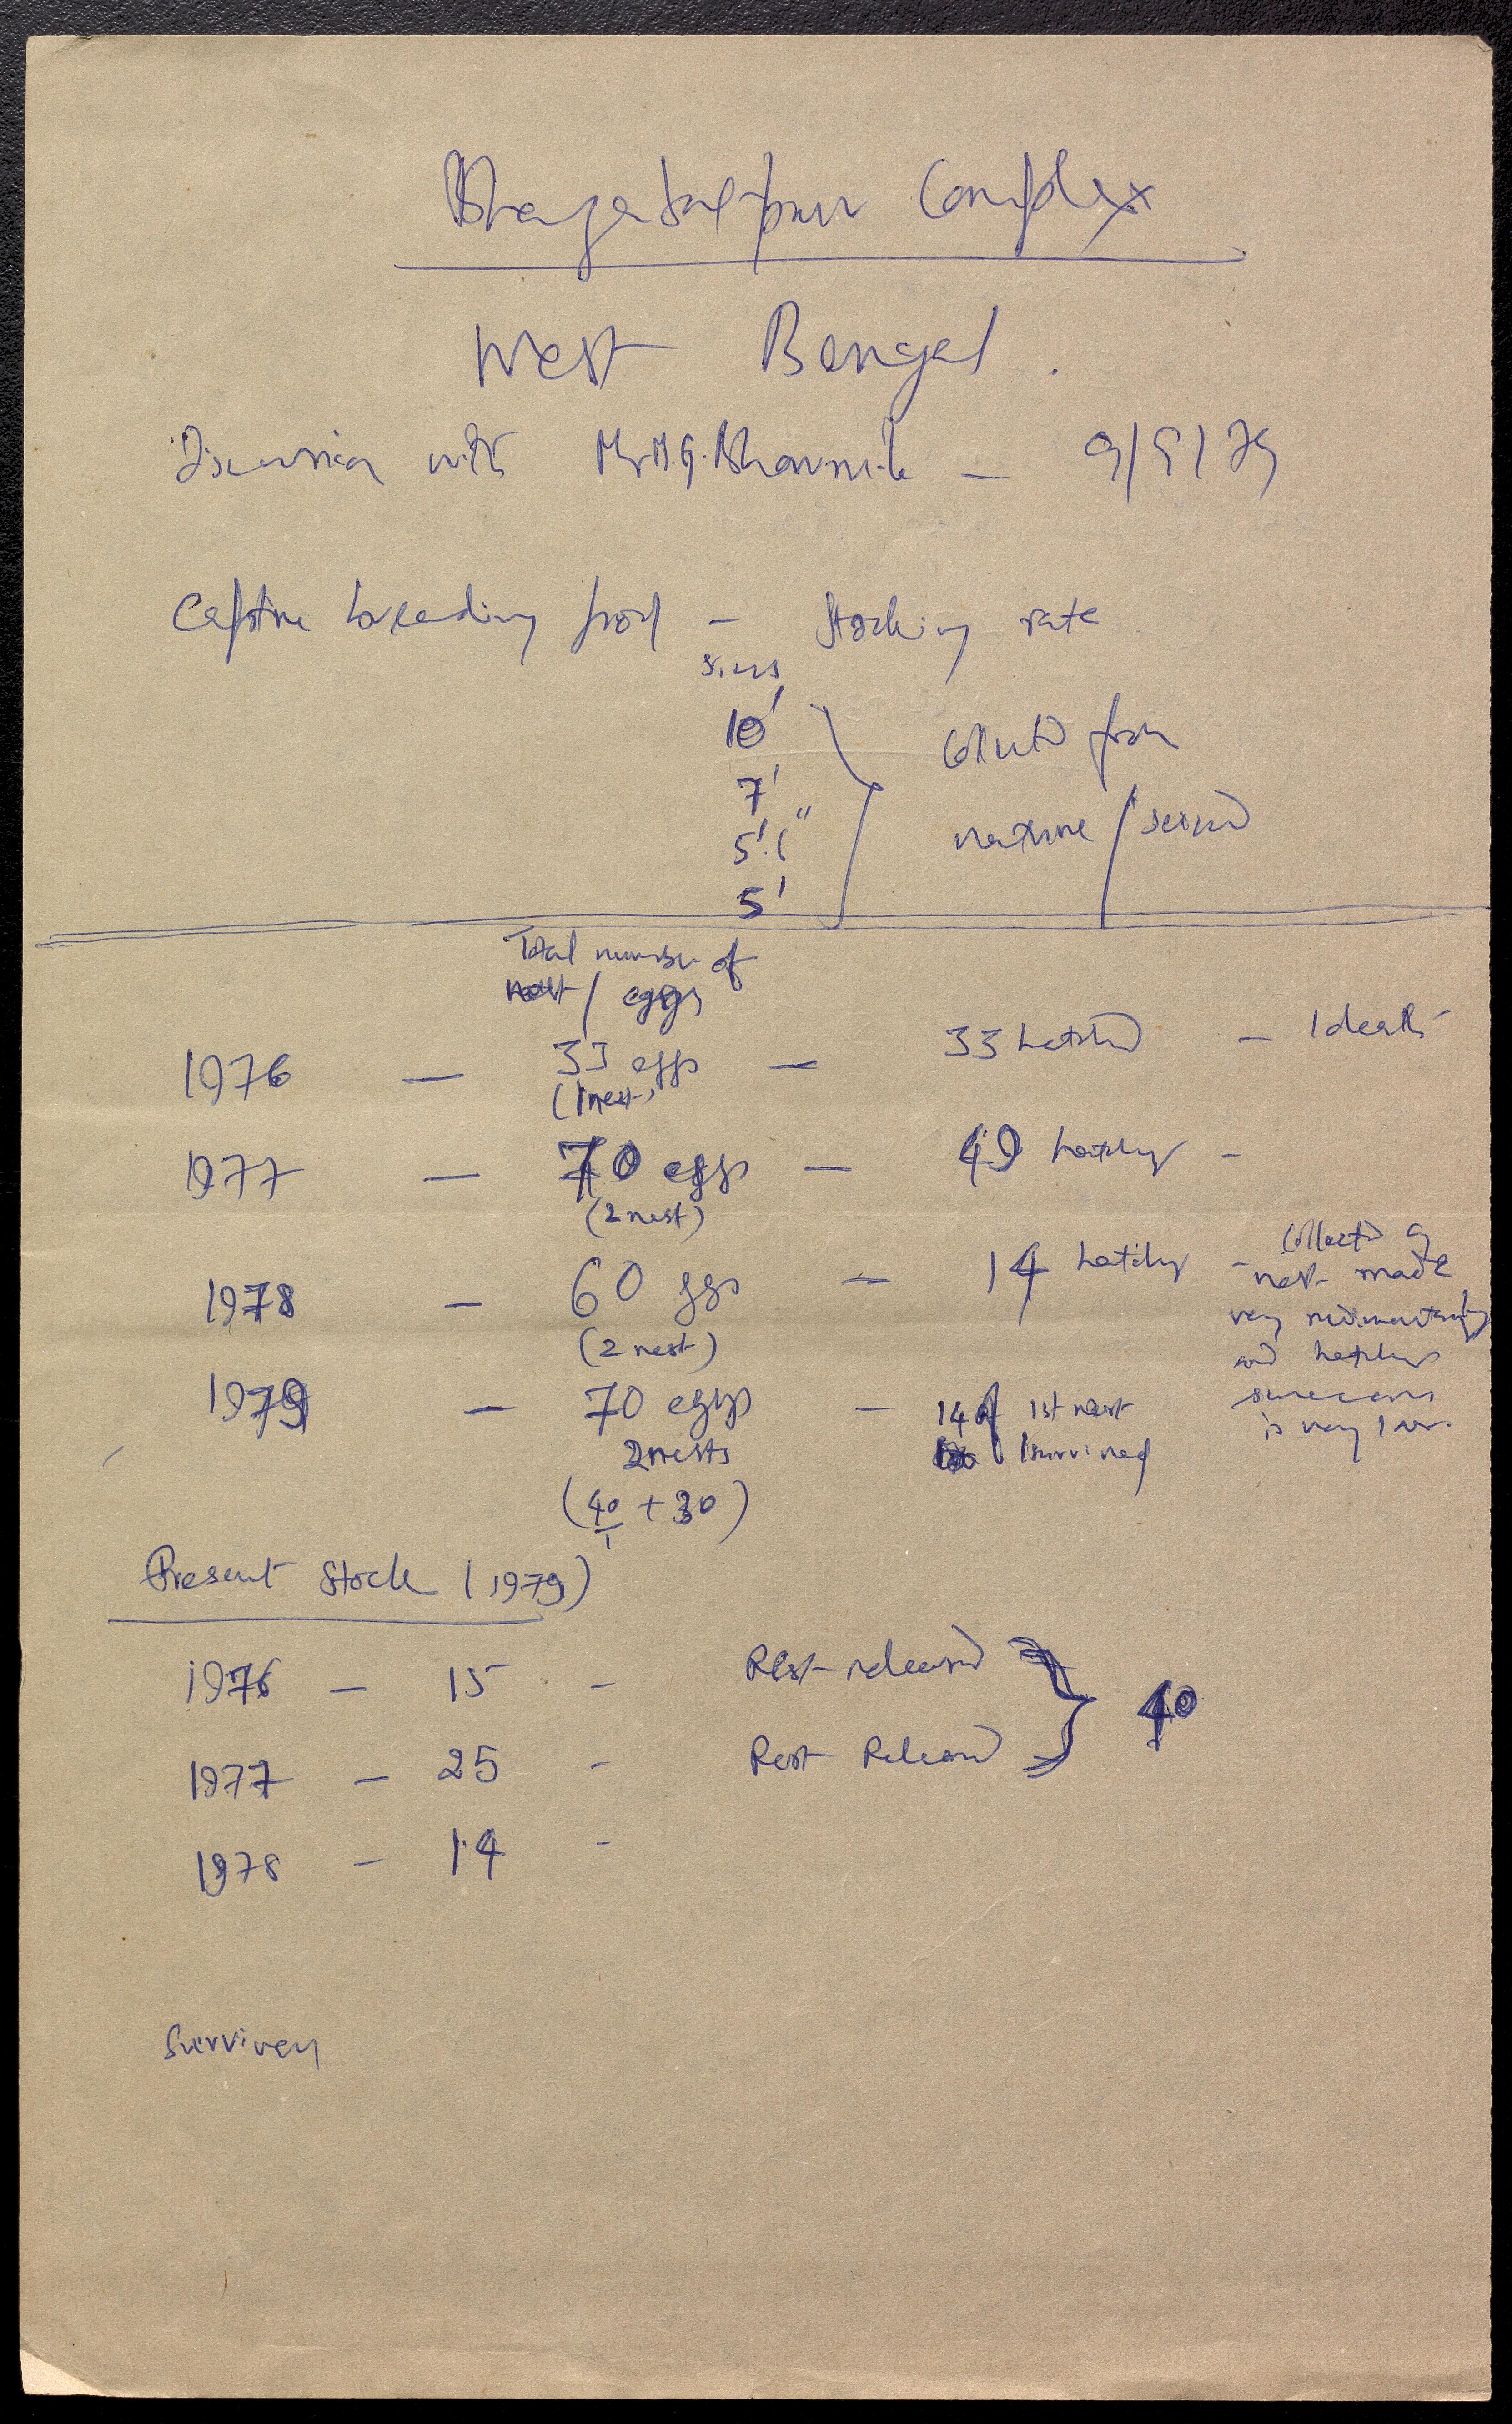 Bhagabatpur Complex
West Bengal.
Discussion with Mr M.G. Bhowmik — 9/9/79
Captive breeding pool — Stocking rate
sizes
10'
7' Collected from
5'.6" nature / seized
5'
Total number of
nest / eggs
1976 — 33 eggs — 33 hatched — 1 death
(1 nest)
1977 — 70 eggs — 49 hatchlings —
(2 nest)
1978 — 60 eggs — 14 hatchlings — Collection of
nest made
very rudimentarily
and hatching
success
is very low.
(2 nest)
1979 — 70 eggs — 14 of 1st nest
2 nests survived
(40 + 30)
1
Present Stock (1979)
1976 — 15 — Rest released
40
1977 — 25 — Rest Released
1978 — 14 —